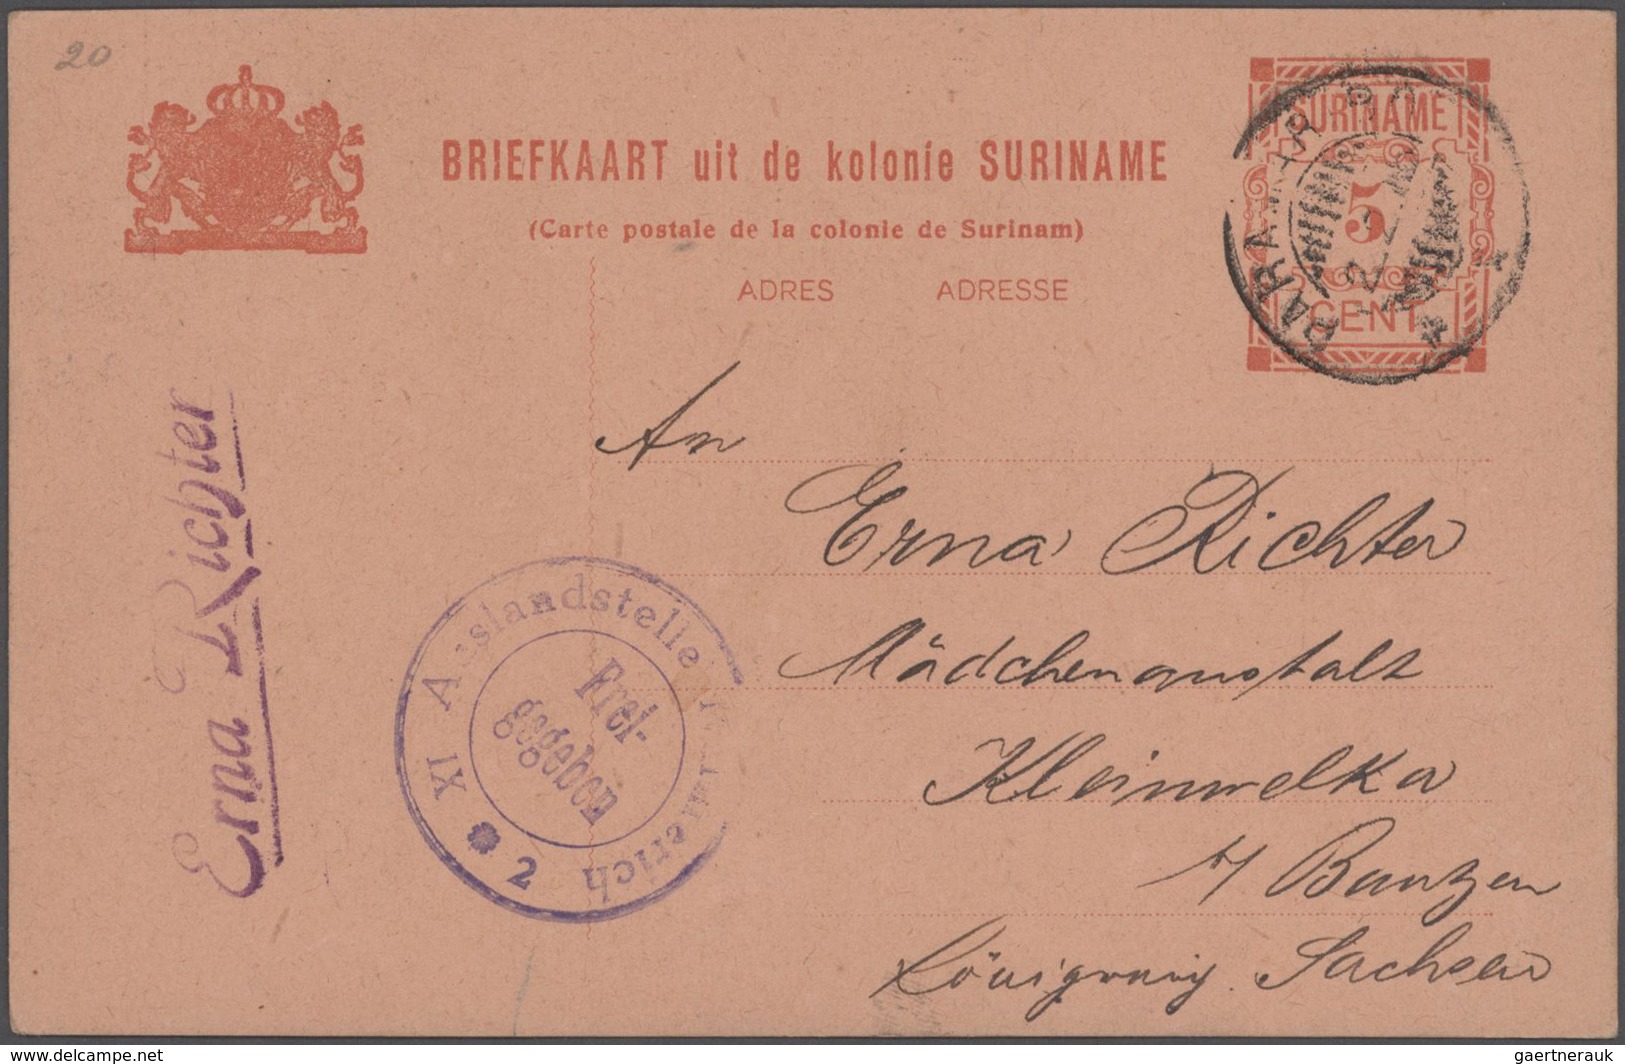 20
BRIEFKAART uit de kolonie SURINAME
(Carte postale de la colonie de Surinam)
ADRES ADRESSE
SURINAME
5
CENT
An
Erna Richter
Mädchenanstalt
Kleinwelka
b/ Bautzen
Königreich Sachsen
Erna Richter
XI Auslandstelle
Frei-
gegeben
2
www.delcampe.net
gaertnerauk